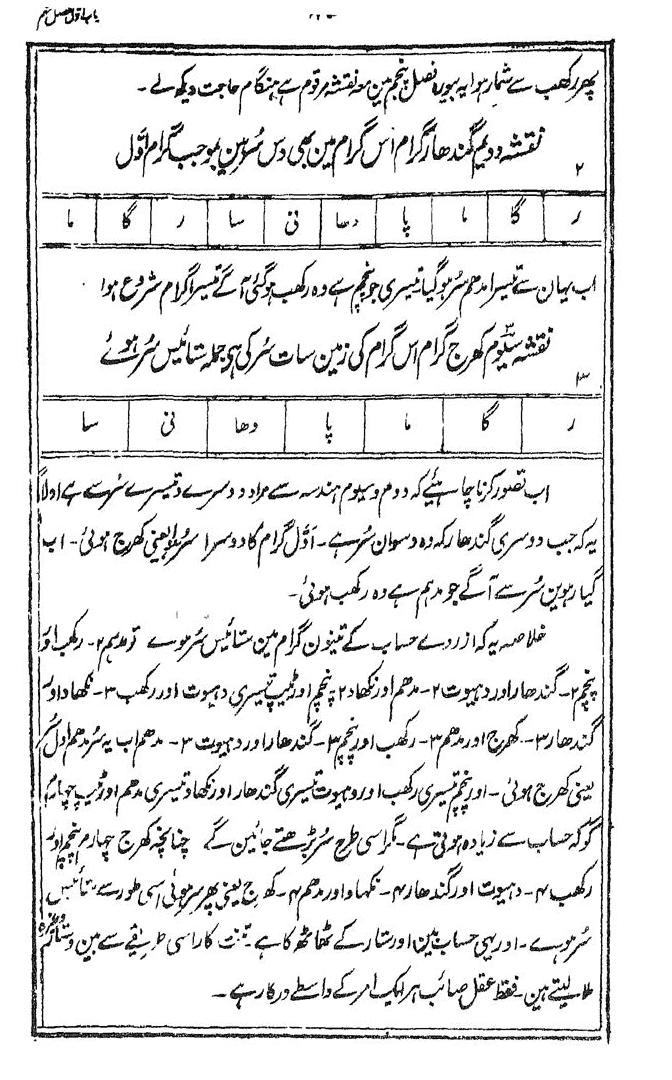 باب اول فصل پنجم
۲۲
پھر رکھب سے شمار ہوا یہ بیورہ فصل پنجم مین معہ نقشہ مرقوم ہے ہنگام حاجت دیکھ لے ۔
نقشہ دویم گندھار گرام اس گرام مین بھی دس سُر ہین بموجب گرام اوّل
۲
ر گا ما پا دھا نی سا ر گا ما
اب یہان سے تیسرا مدھم سر ہوگیا تیسری جو پنچم ہے وہ رکھب ہوگئی آگے تیسرا گرام شروع ہوا
نقشہ سیوم کھرج گرام اس گرام کی زمین سات سُر کی ہی جملہ ستائیس سُر ہوئے
۳
ر گا ما پا دھا نی سا
اب تصور کرنا چاہئیے کہ دوم وسیوم ہندسہ سے مراد دوسرے و تیسرے سُر سے ہے اولاً
یہ کہ جب دوسری گندھار کہ وہ دسوان سُر ہے ۔ اَوّل گرام کا دوسرا سُر ہوا یعنی کھرج ہوئی ۔ اب
گیارہوین سُر سے آگے جو مدہم ہے وہ رکھب ہوئی ۔
خلاصہ یہ کہ از روے حساب کے تینون گرام مین ستائیس سُر ہوے تو مدہم ۲ ۔ رکھب اور
پنچم ۲ ۔ گندھار اور دہیوت ۲ ۔ مدھم اور نکھاد ۲ پنچم اور ٹیپ تیسری دہیوت اور رکھب ۳ ۔ نکھاد اور
گندھار ۳ ۔ کھرج اور مدھم ۳ ۔ رکھب اور پنچم ۳ ۔ گندھار اور دہیوت ۳ ۔ مدھم اب یہ سُر مدھم اول سُر
یعنی کھرج ہوئی ۔ اور پنچم تیسری رکھب اور دہیوت تیسری گندھار اور نکھاد تیسری مدھم اور ٹیپ چہارم
گو کہ حساب سے زیادہ ہوتی ہے ۔ مگر اسی طرح سُر بڑھتے جائین گے چنانچہ کھرج چہارم پنچم اور
رکھب ۴ ۔ دہیوت اور گندھار ۴ ۔ نکھاد اور مدھم ۴ ۔ کھرج یعنی پھر سر ہوئی اسی طور سے ستائیس
سُر ہوے ۔ اور یہی حساب بین اور ستار کے ٹھاٹھ کا ہے کار اسی طریقے سے بین و ستار وغیرہ
ملا لیتے ہین ۔ فقط عقل صائب ہر ایک امر کے واسطے درکار ہے ۔